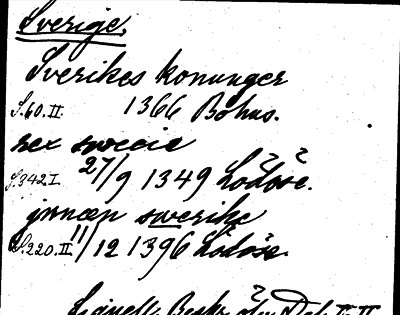 Sverige.
Sverikes konunger
S.60.II. 1366 Bohus.
rex swecie
S.342 I. 27/9 1349 Lödöse.
jnnæn swerike
S.220.II 11/12 1396 Lödöse.